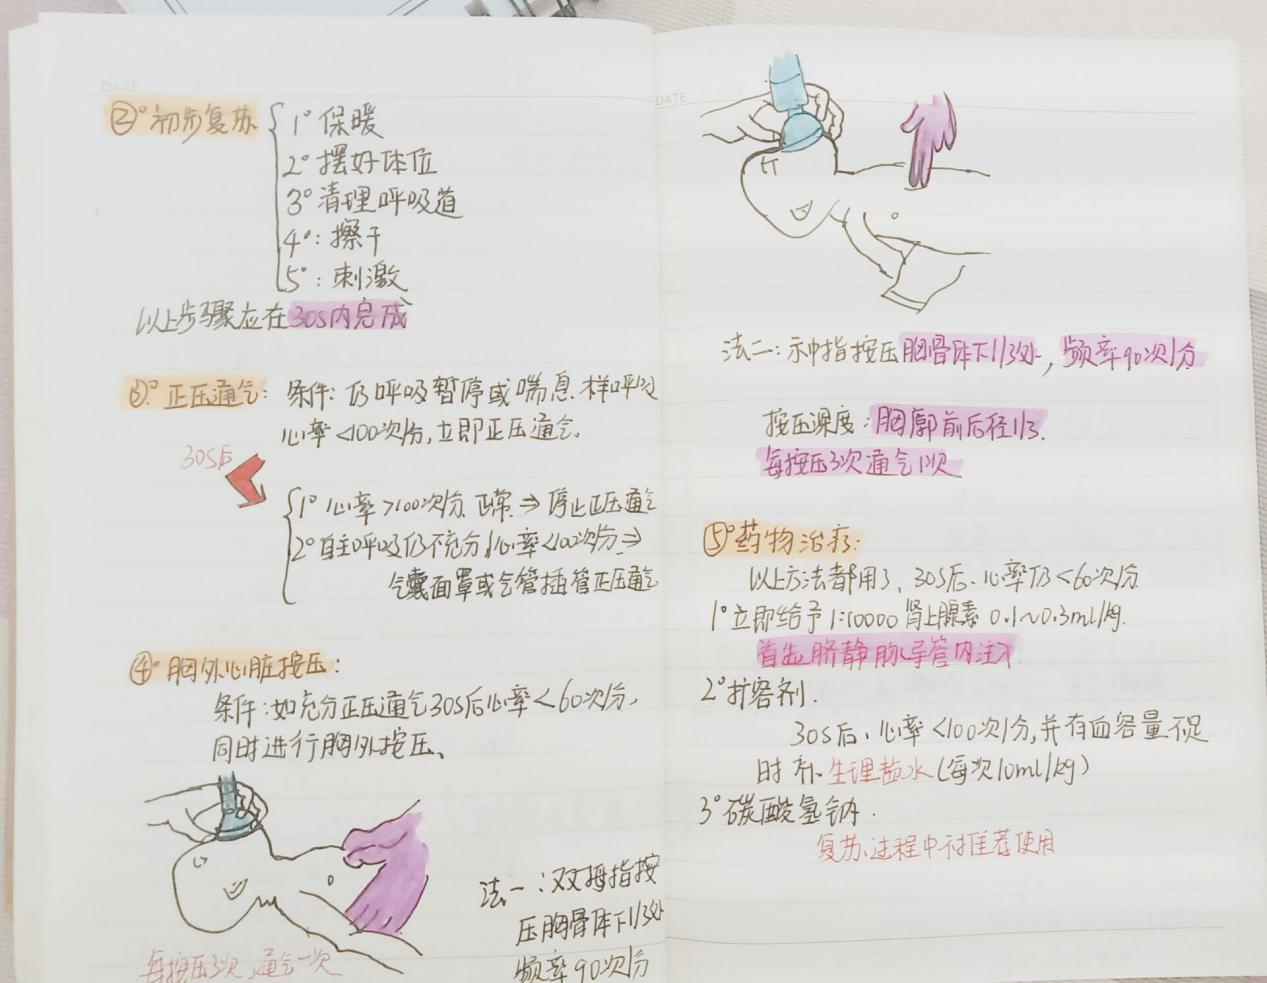 DATE /
②° 初步复苏
1° 保暖
2° 摆好体位
3° 清理呼吸道
4°: 擦干
5°: 刺激
以上步骤应在30s内完成
③° 正压通气: 条件: 仍呼吸暂停或喘息样呼吸
心率<100次/分,立即正压通气。
30s后
1° 心率>100次/分 正常 ⇒ 停止正压通气
2° 自主呼吸仍不充分/心率<100次/分 ⇒
气囊面罩或气管插管正压通气
④° 胸外心脏按压:
条件: 如充分正压通气30s后心率<60次/分,
同时进行胸外按压、
法一: 双拇指按
压胸骨体下1/3处
频率90次/分
每按压3次,通气一次
DATE /
法二: 示中指按压胸骨体下1/3处, 频率90次/分
按压深度: 胸廓前后径1/3.
每按压3次通气1次
⑤° 药物治疗:
以上方法都用了、30s后、心率仍<60次/分
1° 立即给予1:10000肾上腺素 0.1~0.3ml/kg.
首选脐静脉导管内注入.
2° 扩容剂.
30s后、心率<100次/分,并有血容量不足
时 补、生理盐水(每次10ml/kg)
3° 碳酸氢钠.
复苏过程中不推荐使用